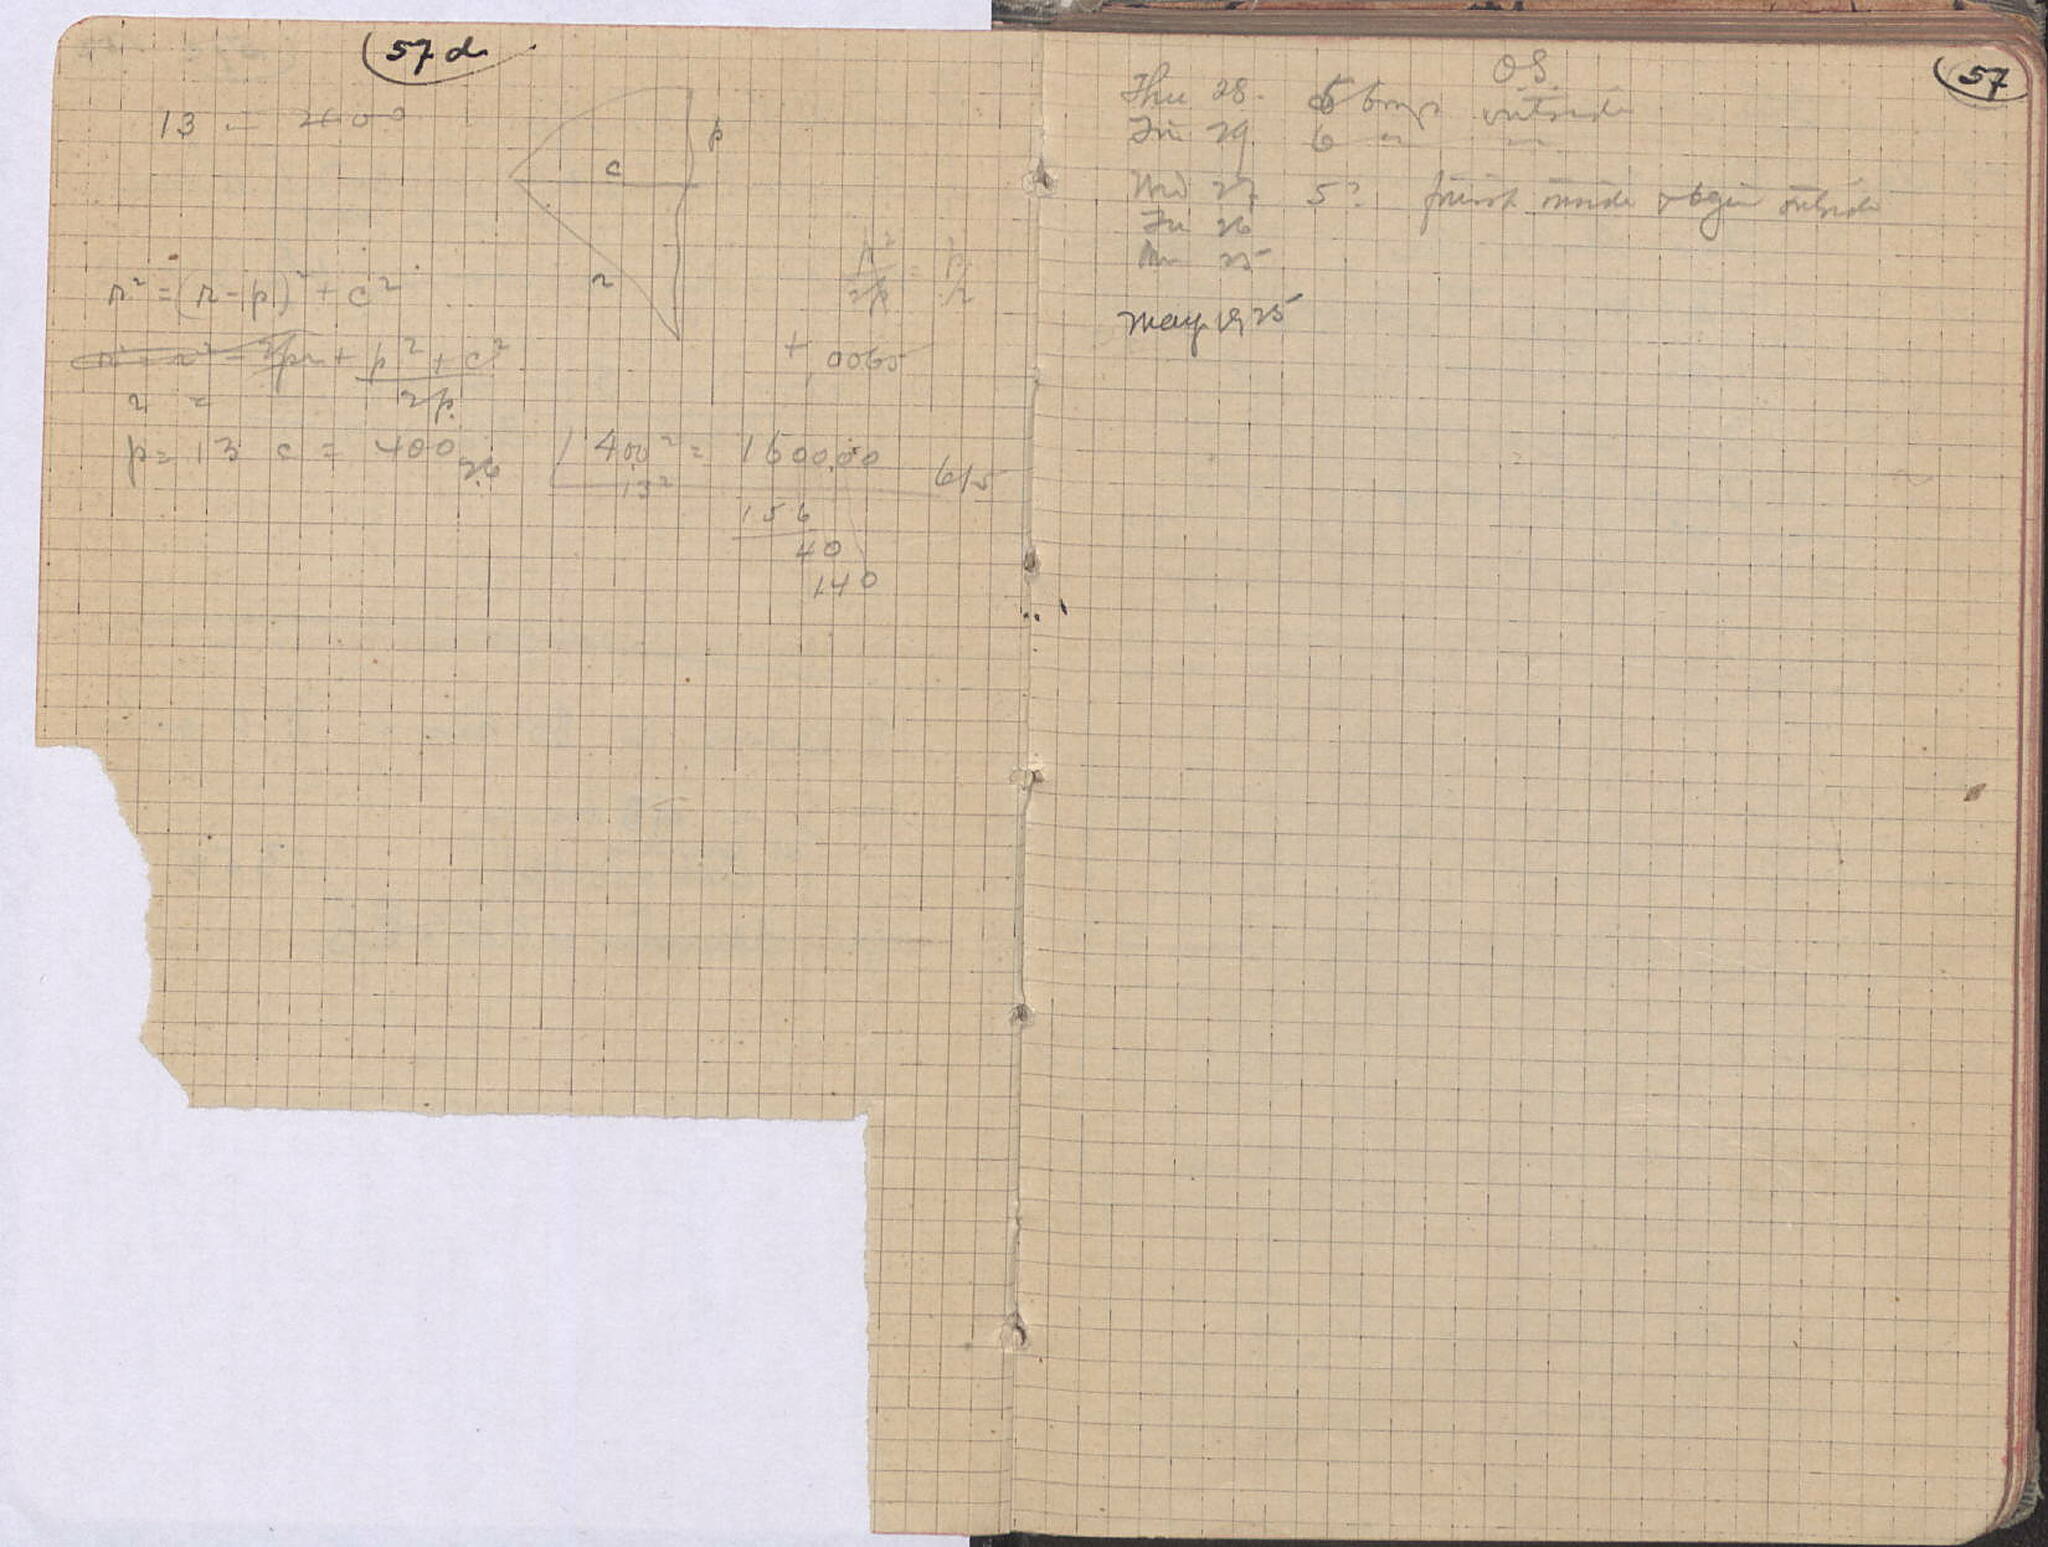 57d
13 - 2600
p
c
r
r² = (r - p)² + c²
r² = r² - 2pr + p² + c²
r = 2p
+ .0065
p = 13 c = 400
26 400² = 160000 615
13²
156
40
140
57
OS
Thu 28. 5 boys outside
Fri 29 6 " "
Wed 27 5? finish inside & begin outside
Tu 26
Mn 25
May 1925